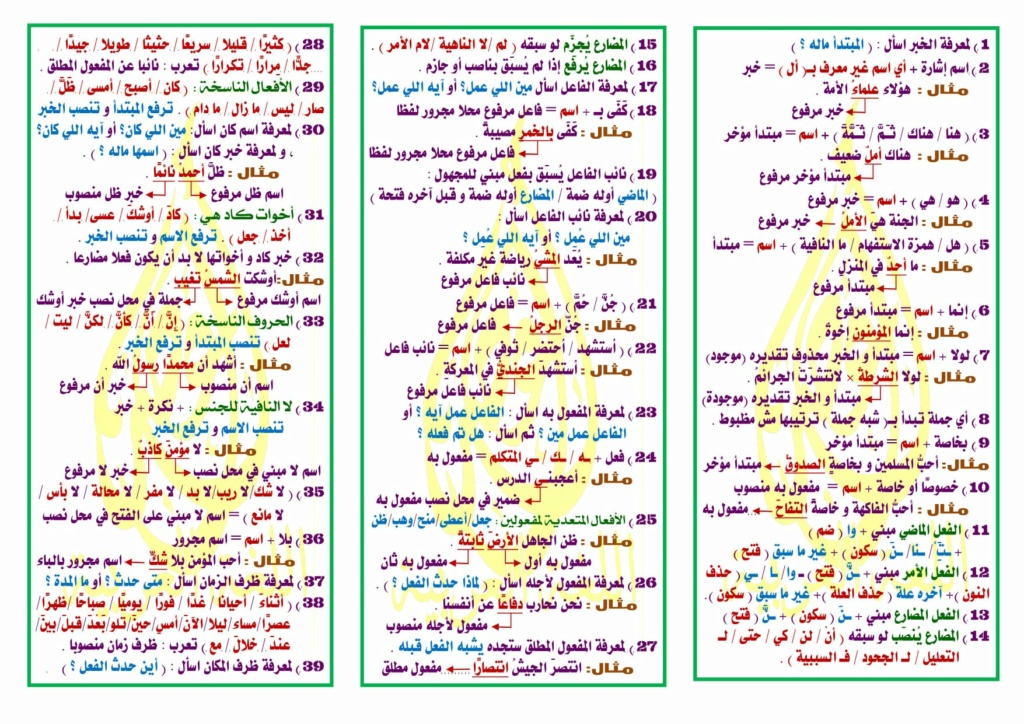 1) لمعرفة الخبر اسأل : ( المبتدأ ماله ؟ )
2) اسم إشارة + أي اسم غير معرف بـ( أل ) = خبر
مثال : هؤلاء علماءُ الأمة .
خبر مرفوع
3) ( هنا / هناك / ثَمَّ / ثَمَّةَ ) + اسم = مبتدأ مؤخر
مثال : هناك أملٌ ضعيف .
مبتدأ مؤخر مرفوع
4) ( هو / هي ) + اسم = خبر مرفوع
مثال : الجنة هيَ الأملُ خبر مرفوع
5) ( هل / همزة الاستفهام / ما النافية ) + اسم = مبتدأ
مثال : ما أحدٌ في المنزلِ .
مبتدأ مرفوع
6) إنما + اسم = مبتدأ مرفوع
مثال : إنما المؤمنون إخوةٌ .
7) لولا + اسم = مبتدأ و الخبر محذوف تقديره (موجود)
مثال : لولا الشرطةُ × لانتشرَت الجرائمُ .
مبتدأ و الخبر تقديره (موجودة)
8) أي جملة تبدأ بـ( شبه جملة ) ترتيبها مش مظبوط .
9) بخاصة + اسم = مبتدأ مؤخر
مثال: أحبُّ المسلمين و بخاصةٍ الصدوقُ مبتدأ مؤخر
10) خصوصًا أو خاصة + اسم = مفعول به منصوب
مثال : أحبُّ الفاكهة و خاصةً التفاحَ مفعول به
11) الفعل الماضي مبني + وا ( ضم )
+ ـتَ / ـنا/ ـنَ ( سكون ) + غير ما سبق ( فتح )
12) الفعل الأمر مبني + ـنَّ ( فتح ) ـ وا/ ـا / ـي ( حذف
النون ) + آخره علة ( حذف العلة )+ غير ما سبق ( سكون ).
13) الفعل المضارع مبني + ـنَ ( سكون ) + ـنَّ ( فتح )
14) المضارع يُنصَب لو سبقه ( أنْ / لن / كي / حتى / لـ
التعليل / لـ الجحود / فـ السببية ) .
15) المضارع يُجزَم لو سبقه ( لم /لا الناهية /لام الأمر ) .
16) المضارع يُرفَع إذا لم يُسبَق بناصب أو جازم .
17) لمعرفة الفاعل اسأل مين عمل؟ أو آيه اللي عمل؟
18) كَفَى بـ + اسم = فاعل مرفوع محلا مجرور لفظا
مثال : كَفَى بالخمرِ مصيبةً .
فاعل مرفوع محلا مجرور لفظا
19) نائب الفاعل يُسبَق بفعل مبني للمجهول :
( الماضي أوله ضمة / المضارع أوله ضمة و قبل آخره فتحة )
20) لمعرفة نائب الفاعل اسأل :
مين اللي عُمِل ؟ أو آيه اللي عُمِل ؟
مثال : يُعَد المشيُ رياضة غير مكلفة .
نائب فاعل مرفوع
21) ( جُنَّ / حُمَّ ) + اسم = فاعل مرفوع
مثال : جُنَّ الرجلُ فاعل مرفوع
22) ( أستشهد / أحتضر / تُوفي ) + اسم = نائب فاعل
مثال : أستشهدَ الجنديُّ في المعركة .
نائب فاعل مرفوع
23) لمعرفة المفعول به اسأل : الفاعل عمل آيه ؟ أو
الفاعل عمل مين ؟ ثم اسأل : هل تم فعله ؟
24) فعل + ـه / ـك / ـي المتكلم = مفعول به
مثال : أعجبني الدرس .
ضمير في محل نصب مفعول به
25) الأفعال المتعدية لمفعولين : جعل/أعطى/منح/وهب/ظن
مثال : ظن الجاهل الأرضَ ثابتةً .
مفعول به أول مفعول به ثان
26) لمعرفة المفعول لأجله اسأل : ( لماذا حدث الفعل ؟ ) .
مثال : نحن نحارب دفاعًا عن أنفسنا .
مفعول لأجله منصوب
27) لمعرفة المفعول المطلق ستجده يشبه الفعل قبله .
مثال : انتصرَ الجيشُ انتصارًا مفعول مطلق
28) ( كثيرًا / قليلا / سريعًا / حثيثًا / طويلا / جيدًا /
جدًّا / مرارًا / تكرارًا ) تعرب : نائبا عن المفعول المطلق .
29) الأفعال الناسخة : ( كان / أصبح / أمسى / ظَلَّ /
صار /ليس / ما زال / ما دام ) . ترفع المبتدأ و تنصب الخبر
30) لمعرفة اسم كان اسأل: مين اللي كان؟ أو آيه اللي كان؟
، و لمعرفة خبر كان اسأل : ( اسمها ماله ؟ ) .
مثال : ظلَّ أحمدُ نائمًا .
اسم ظل مرفوع خبر ظل منصوب
31) أخوات كاد هي : ( كادَ / أوشكَ / عسى/ بدأ /
أخذ / جعل ) . ترفع الاسم و تنصب الخبر .
32) خبر كاد و أخواتها لا بد أن يكون فعلا مضارعا .
مثال:أوشكت الشمسُ تغيب .
اسم أوشك مرفوع جملة في محل نصب خبر أوشك
33) الحروف الناسخة : ( إنَّ / أنَّ / كأنَّ / لكنَّ / ليت /
لعل ) تنصب المبتدأ و ترفع الخبر .
مثال : أشهد أن محمدًا رسولُ الله .
اسم أن منصوب خبر أن مرفوع
34) لا النافية للجنس : + نكرة + خبر
تنصب الاسم و ترفع الخبر
مثال : لا مؤمنَ كاذبٌ .
اسم لا مبني في محل نصب خبر لا مرفوع
35) ( لا شك/ لا ريب/ لا بد / لا مفر / لا محالة / لا بأس /
لا مانع ) = اسم لا مبني على الفتح في محل نصب
36) بلا + اسم = اسم مجرور
مثال : أحب المؤمن بلا شكٍّ اسم مجرور بالباء
37) لمعرفة ظرف الزمان اسأل : متى حدث ؟ أو ما المدة ؟
38) ( أثناء / أحيانا / غدًا / فورًا / يوميًا / صباحًا / ظهرًا/
عصرًا/ مساء/ ليلا /الآنَ /أمسِ/حينَ/تلو/بَعْدَ/قبلَ/بينَ/
عندَ / خلالَ / مع ) تعرب : ظرف زمان منصوبا .
39) لمعرفة ظرف المكان اسأل : ( أين حدث الفعل ؟ ) .